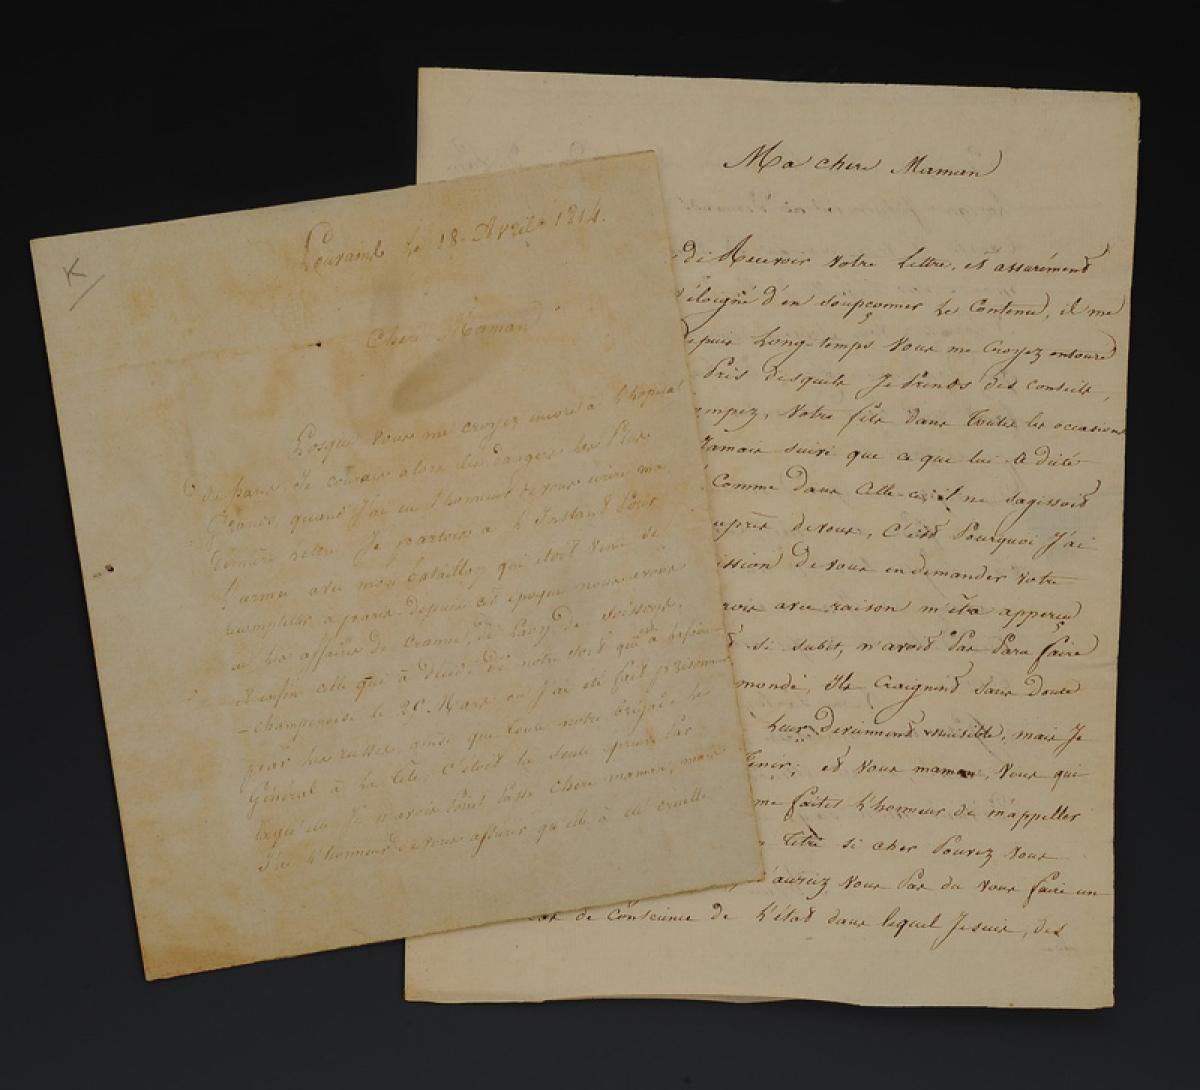 K
Louvain le 18 Avril 1814.
Chere Maman
Losque vous me croyez encore à l'hopital
de paris, Je courais alors les dangers les Plus
quand J'ai eu l'honneur de vous écrire ma
derniere lettre Je partois à l'Instant Pour
l'armée avec mon bataillon qui etoit venu se
a paris. depuis cet époque nous avons
eu les affaires de Craonne, de Laon de Soissons,
et enfin celle qui à decidé de notre sort à
-champenoise le 25 Mars ou J'ai eté fait prisonnier
par les russes, ainsi que toute notre brigade le
Général à la tete, C'etoit la seule épreuve Par
laquelle Je n'avois Point Passé chere maman, mais
J'ai l'honneur de vous assurer qu'elle à eté cruelle
Ma chere Maman
de Recevoir votre lettre, et assurément
éloigné d'en soupçonner le Contenu, il me
depuis Long-temps vous me croyez entouré
Près desquels Je Prends des conseils,
votre fils dans toutes les occasions
Jamais suivi que ce que lui a dicté
Comme dans celle-ci il ne sagissoit
auprès de vous, C'est Pourquoi J'ai
de vous en demander votre
avec raison m'être apperçu
si subit, n'avoit Pas Paru faire
monde, Ils Craignent sans doute
leur deviennent nuisible, mais Je
et vous maman, vous qui
me faites l'honneur de m'appeller
Titre si cher Pouvez vous
n'auriez vous Pas du vous faire un
cas de Conscience de l'état dans lequel Je suis, des